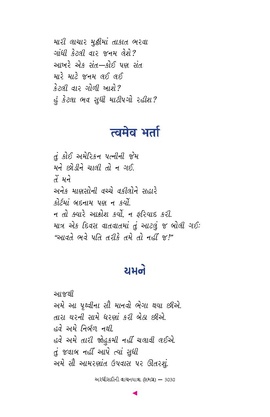 મારી લાચાર મુઠ્ઠીમાં તાકાત ભરવા
ગાંધી કેટલી વાર જનમ લેશે?
આખરે એક સંત—કોઈ પણ સંત
મારે માટે જનમ લઈ લઈ
કેટલી વાર ગોળી ખાશે?
હું કેટલા ભવ સુધી માટીપગો રહીશ?
ત્વમેવ ભર્તા
તું કોઈ અમેરિકન પત્નીની જેમ
મને છોડીને ચાલી તો ન ગઈ.
તેં મને
અનેક માણસોની વચ્ચે વકીલોને સહારે
કોર્ટમાં બદનામ પણ ન કર્યો.
ન તો ક્યારે આક્રોશ કર્યો, ન ફરિયાદ કરી.
માત્ર એક દિવસ વાતવાતમાં તું આટલું જ બોલી ગઈઃ
“આવતે ભવે પતિ તરીકે તમે તો નહીં જ!”
યમને
આજથી
અમે આ પૃથ્વીના સૌ માનવી ભેગા થયા છીએ.
તારા ઘરની સામે ધરણાં કરી બેઠા છીએ.
હવે અમે નિર્બળ નથી.
હવે અમે તારી જોહુકમી નહીં ચલાવી લઈએ.
તું જવાબ નહીં આપે ત્યાં સુધી
અમે સૌ આમરણાંત ઉપવાસ પર ઊતરશું.